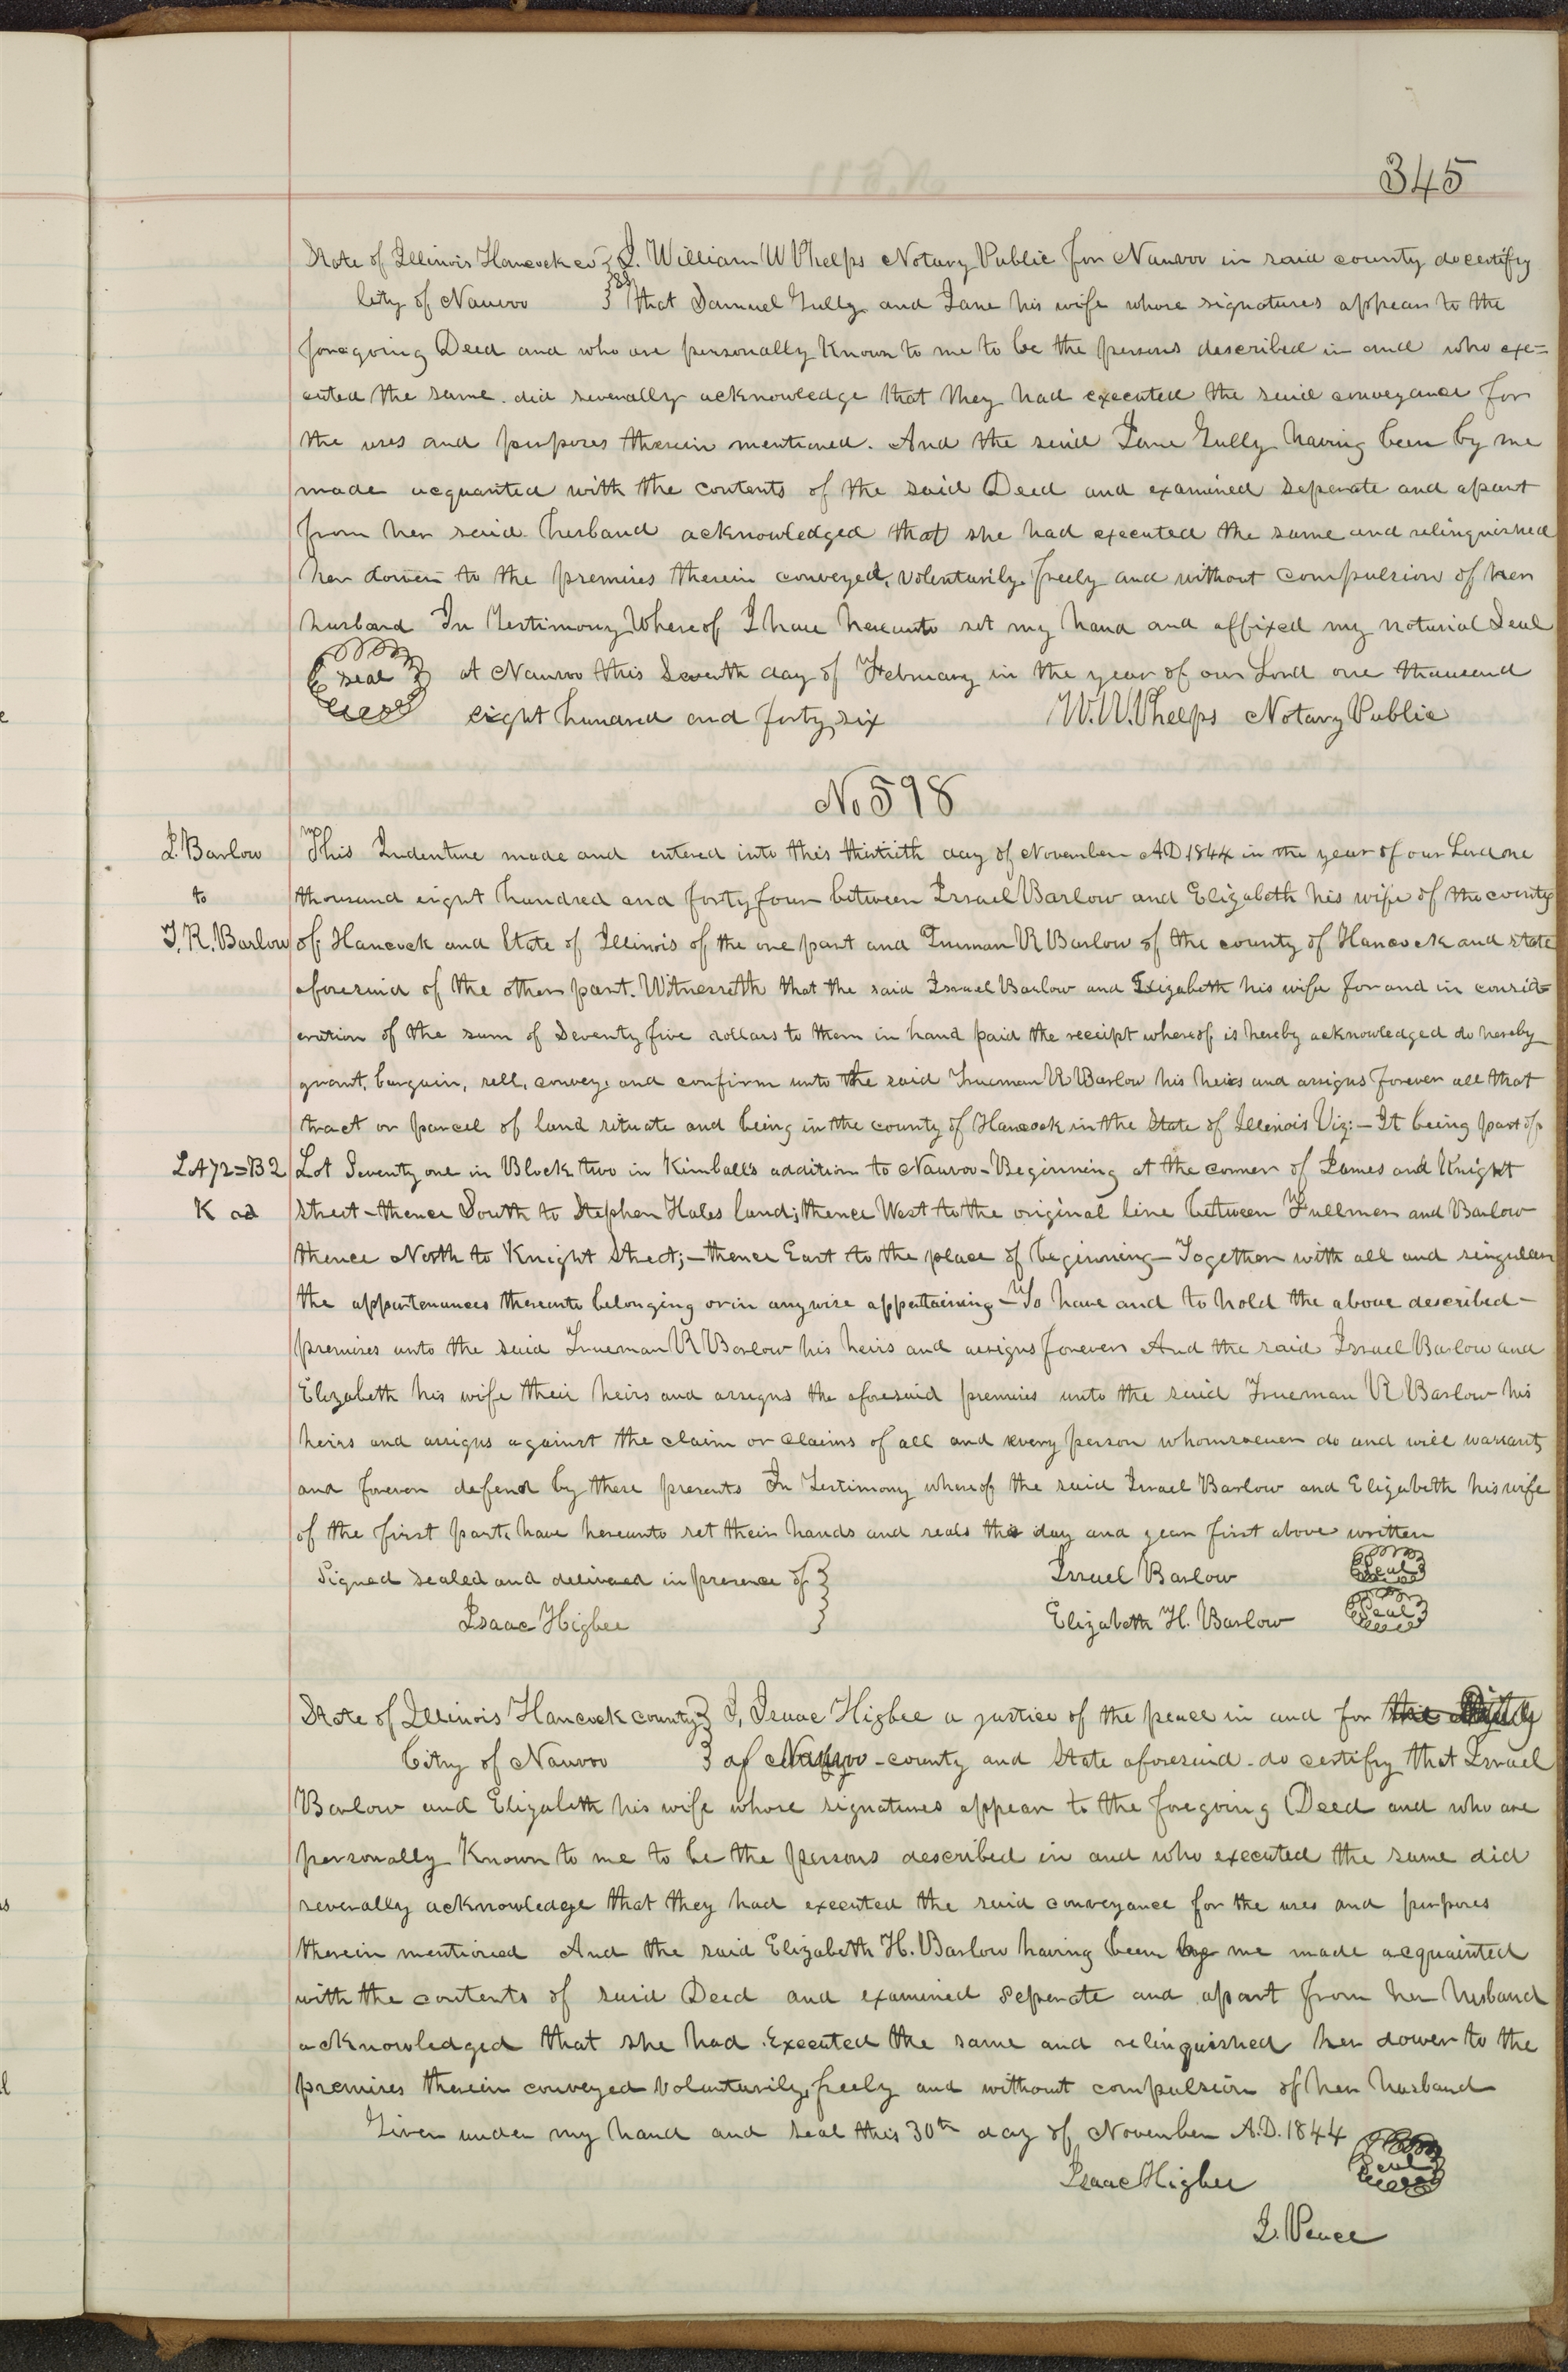 345
State of Illinois Hancock co } SS I. William W Phelps Notary Public for Nauvoo in said county do certify
City of Nauvoo } that Samuel Gully and Jane his wife whose signatures appear to the
foregoing Deed and who are personally Known to me to be the persons described in and who exe=
cuted the same. did severally acknowledge that they had executed the said conveyance for
the uses and purposes therein mentioned. And the said Jane Gully having been by me
made acquanted with the contents of the said Deed and examined seperate and apart
from her said husband acknowledged that she had executed the same and relinquished
her dower to the premises therein conveyed, volenturily freely and without compulsion of her
husband In Testimony Whereof I have hereunto set my hand and affixed my noturial Seal
seal at Nauvoo this Seventh day of February in the year of our Lord one thousand
eight hundred and forty six W. W. Phelps Notary Public
No 598
I. Barlow This Indenture made and entered into this thirtieth day of November AD 1844 in the year of our Lord one
to thousand eight hundred and forty four between Israel Barlow and Elizabeth his wife of the county
T. R. Barlow of Hancock and State of Illinois of the one part and Truman R Barlow of the county of Hancock and state
aforesaid of the other part. Witnesseth that the said Israel Barlow and Elizabeth his wife for and in consid=
eration of the sum of Seventy five dollars to them in hand paid the receipt whereof is hereby acknowledged do hereby
grant, bargain, sell, convey, and confirm unto the said Trueman R Barlow his heirs and assigns forever all that
tract or parcel of land situate and being in the county of Hancock in the State of Illinois Viz:- It being part of
L A 72=B 2 Lot Seventy one in Block two in Kimball's addition to Nauvoo - Beginning at the corner of James and Knight
K ad street - thence South to Stephen Hales land; thence West to the original line between Fullmer and Barlow
thence North to Knight Street; - thence East to the place of beginning - Together with all and singular
the appurtenances thereunto belonging or in anywise appertaining - To have and to hold the above described -
premises unto the said Trueman R Barlow his heirs and assigns forever And the said Israel Barlow and
Elizabeth his wife their heirs and assigns the aforesaid premises unto the said Trueman R Barlow his
heirs and assigns against the claim or claims of all and every person whomsoever do and will warrant
and forever defend by these presents In Testimony whereof the said Israel Barlow and Elizabeth his wife
of the first part, have hereunto set their hands and seals the day and year first above written
Signed sealed and delivered in presence of } Israel Barlow Seal
Isaac Higbee Elizabeth H. Barlow Seal
State of Illinois Hancock county } I, Isaac Higbee a justice of the peace in and for the
City of Nauvoo } of -county and State aforesaid - do certify that Israel
Barlow and Elizabeth his wife whose signatures appear to the foregoing Deed and who are
personally Known to me to be the persons described in and who executed the same did
severally acknowledge that they had executed the said conveyance for the uses and purposes
therein mentioned And the said Elizabeth H. Barlow having been by me made acquainted
with the contents of said Deed and examined seperate and apart from her husband
acknowledged that she had Executed the same and relinquished her dower to the
premises therein conveyed volunturily, freely and without compulsion of her husband
Given under my hand and seal this 30th day of November A.D. 1844
Isaac Higbee Seal
J. Peace